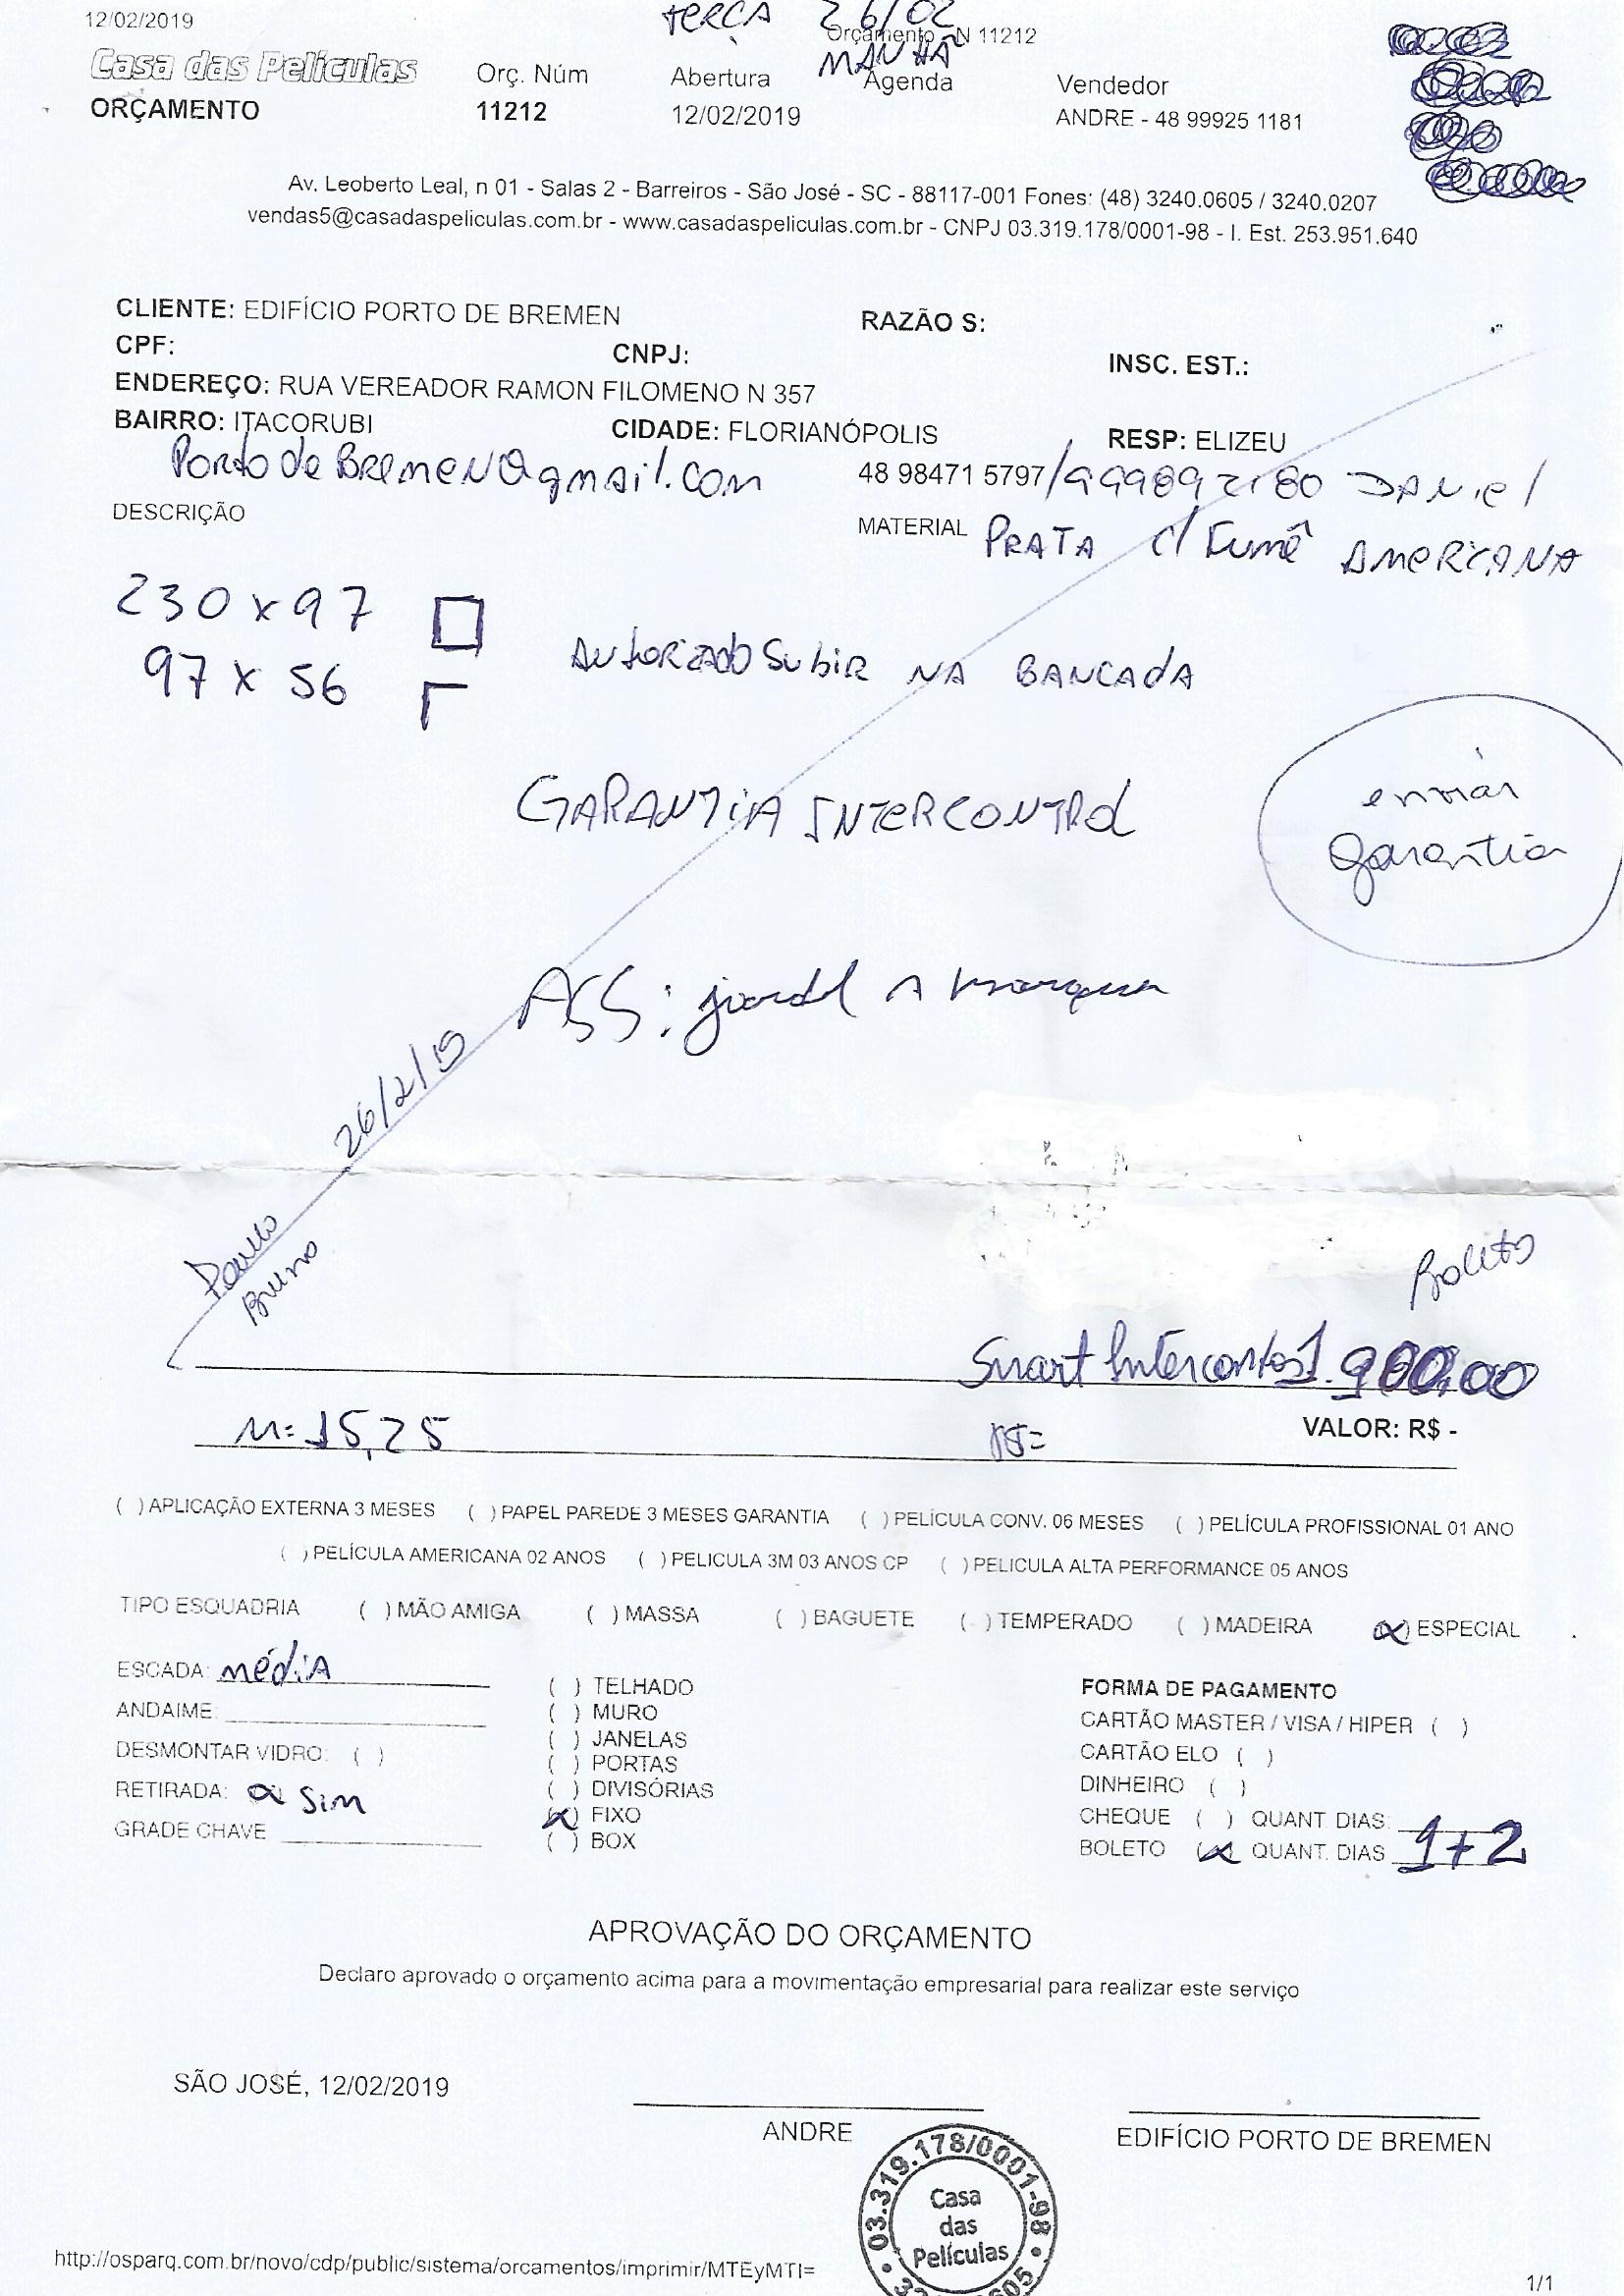 12/02/2019
TERÇA 26/02
MANHÃ
Orçamento N 11212
Casa das Películas
ORÇAMENTO
Orç. Núm
11212
Abertura
12/02/2019
Agenda
Vendedor
ANDRE - 48 99925 1181
Av. Leoberto Leal, n 01 - Salas 2 - Barreiros - São José - SC - 88117-001 Fones: (48) 3240.0605 / 3240.0207
vendas5@casadaspeliculas.com.br - www.casadaspeliculas.com.br - CNPJ 03.319.178/0001-98 - I. Est. 253.951.640
CLIENTE: EDIFÍCIO PORTO DE BREMEN RAZÃO S:
CPF: CNPJ: INSC. EST.:
ENDEREÇO: RUA VEREADOR RAMON FILOMENO N 357
BAIRRO: ITACORUBI CIDADE: FLORIANÓPOLIS RESP: ELIZEU
Porto de Bremen@gmail.com 48 98471 5797 / 999892180 DANiel
DESCRIÇÃO MATERIAL PRATA c/ Fumê AmeRICANA
230 x 97
97 x 56
AUTORIZADO SubiR NA BANCADA
GARANTIA INTERCONTROL
enviar
garantia
ASS:
26/2/19
Paulo
Bruno
Boleto
Smart Intercontrol 900,00
M= 15,25 VALOR: R$ -
( ) APLICAÇÃO EXTERNA 3 MESES ( ) PAPEL PAREDE 3 MESES GARANTIA ( ) PELÍCULA CONV. 06 MESES ( ) PELÍCULA PROFISSIONAL 01 ANO
( ) PELÍCULA AMERICANA 02 ANOS ( ) PELICULA 3M 03 ANOS CP ( ) PELICULA ALTA PERFORMANCE 05 ANOS
TIPO ESQUADRIA ( ) MÃO AMIGA ( ) MASSA ( ) BAGUETE ( ) TEMPERADO ( ) MADEIRA (x) ESPECIAL
ESCADA: média
ANDAIME:
DESMONTAR VIDRO: ( )
RETIRADA: x Sim
GRADE CHAVE
( ) TELHADO
( ) MURO
( ) JANELAS
( ) PORTAS
( ) DIVISÓRIAS
(x) FIXO
( ) BOX
FORMA DE PAGAMENTO
CARTÃO MASTER / VISA / HIPER ( )
CARTÃO ELO ( )
DINHEIRO ( )
CHEQUE ( ) QUANT DIAS:
BOLETO (x) QUANT. DIAS 1+2
APROVAÇÃO DO ORÇAMENTO
Declaro aprovado o orçamento acima para a movimentação empresarial para realizar este serviço
SÃO JOSÉ, 12/02/2019
ANDRE
EDIFÍCIO PORTO DE BREMEN
03.319.178/0001-98
Casa
das
Películas
http://osparq.com.br/novo/cdp/public/sistema/orcamentos/imprimir/MTEyMTI=
1/1